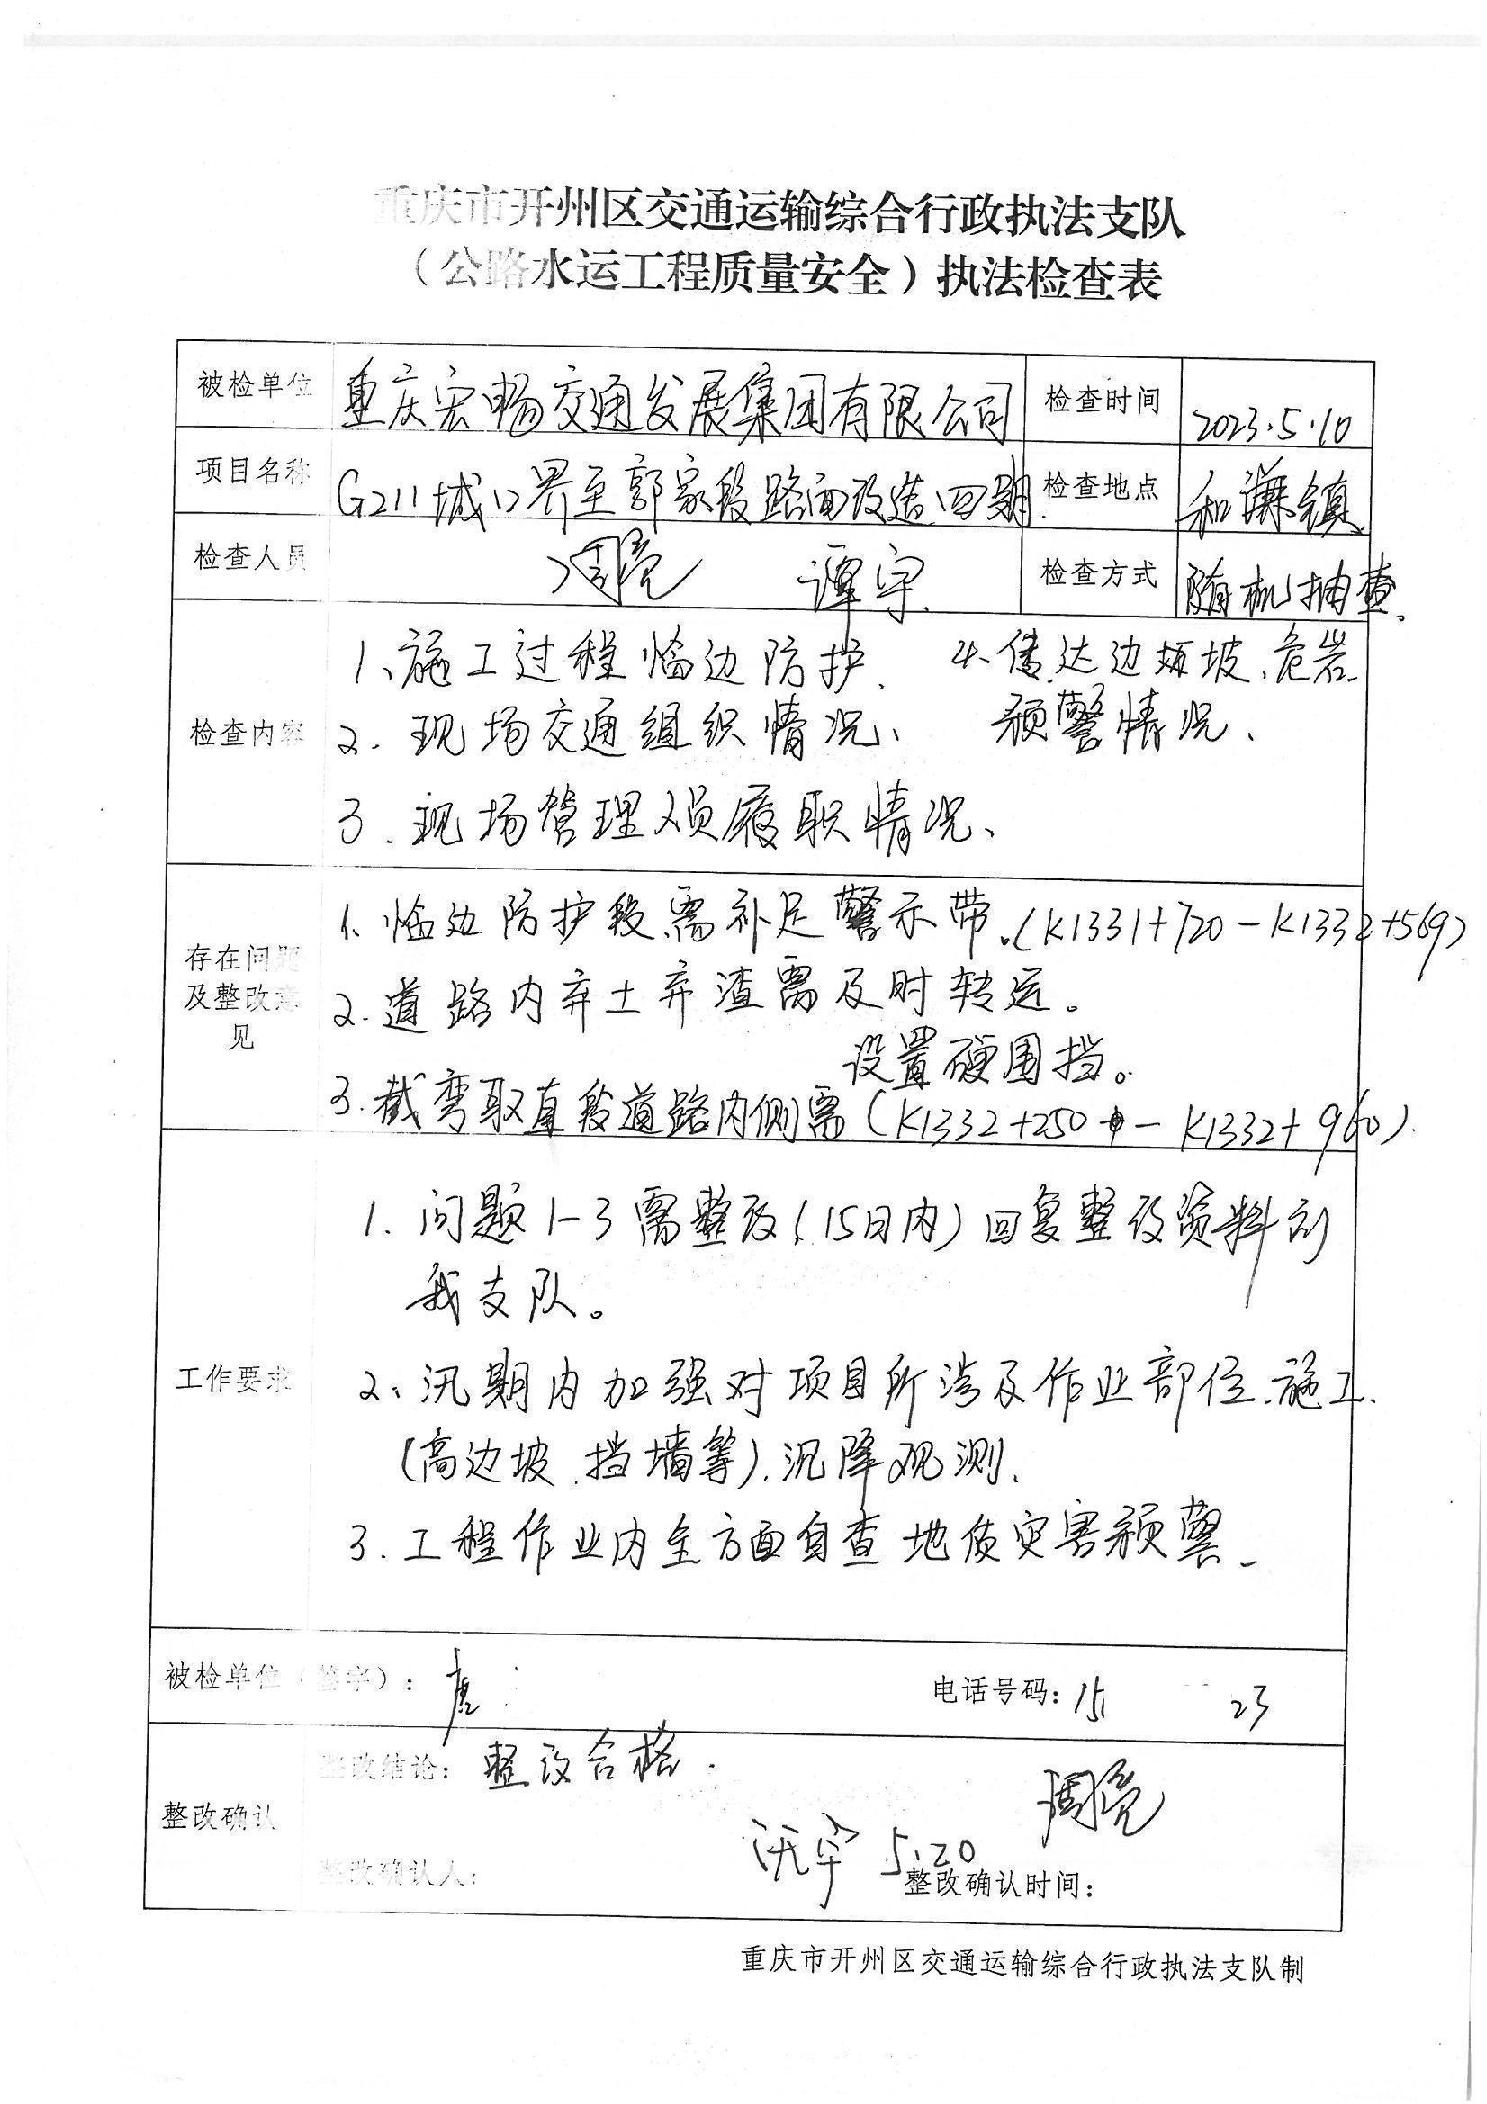 重庆市开州区交通运输综合行政执法支队
（公路水运工程质量安全）执法检查表
被检单位 重庆宏畅交通发展集团有限公司 检查时间 2023.5.10
项目名称 G211城口界至郭家段路面改造四期 检查地点 和谦镇
检查人员 周亮 谭宇 检查方式 随机抽查.
检查内容
1、施工过程临边防护、
2. 现场交通组织情况、
3. 现场管理人员履职情况、
4、传达边坡、危岩
预警情况、
存在问题及整改意见
1. 临边防护段需补足警示带.(K1331+720-K1332+569)
2. 道路内弃土弃渣需及时转运。
设置硬围挡。
3. 截弯取直段道路内侧需(K1332+250 - K1332+960).
工作要求
1. 问题1-3需整改(15日内)回复整改资料到
我支队。
2、汛期内加强对项目所涉及作业部位.施工.
(高边坡.挡墙等).沉降观测.
3. 工程作业内全方面自查地质灾害预警.
被检单位（签字）： 唐 电话号码：15 23
整改确认
整改结论： 整改合格.
周亮
5.20
整改确认人： 整改确认时间：
重庆市开州区交通运输综合行政执法支队制